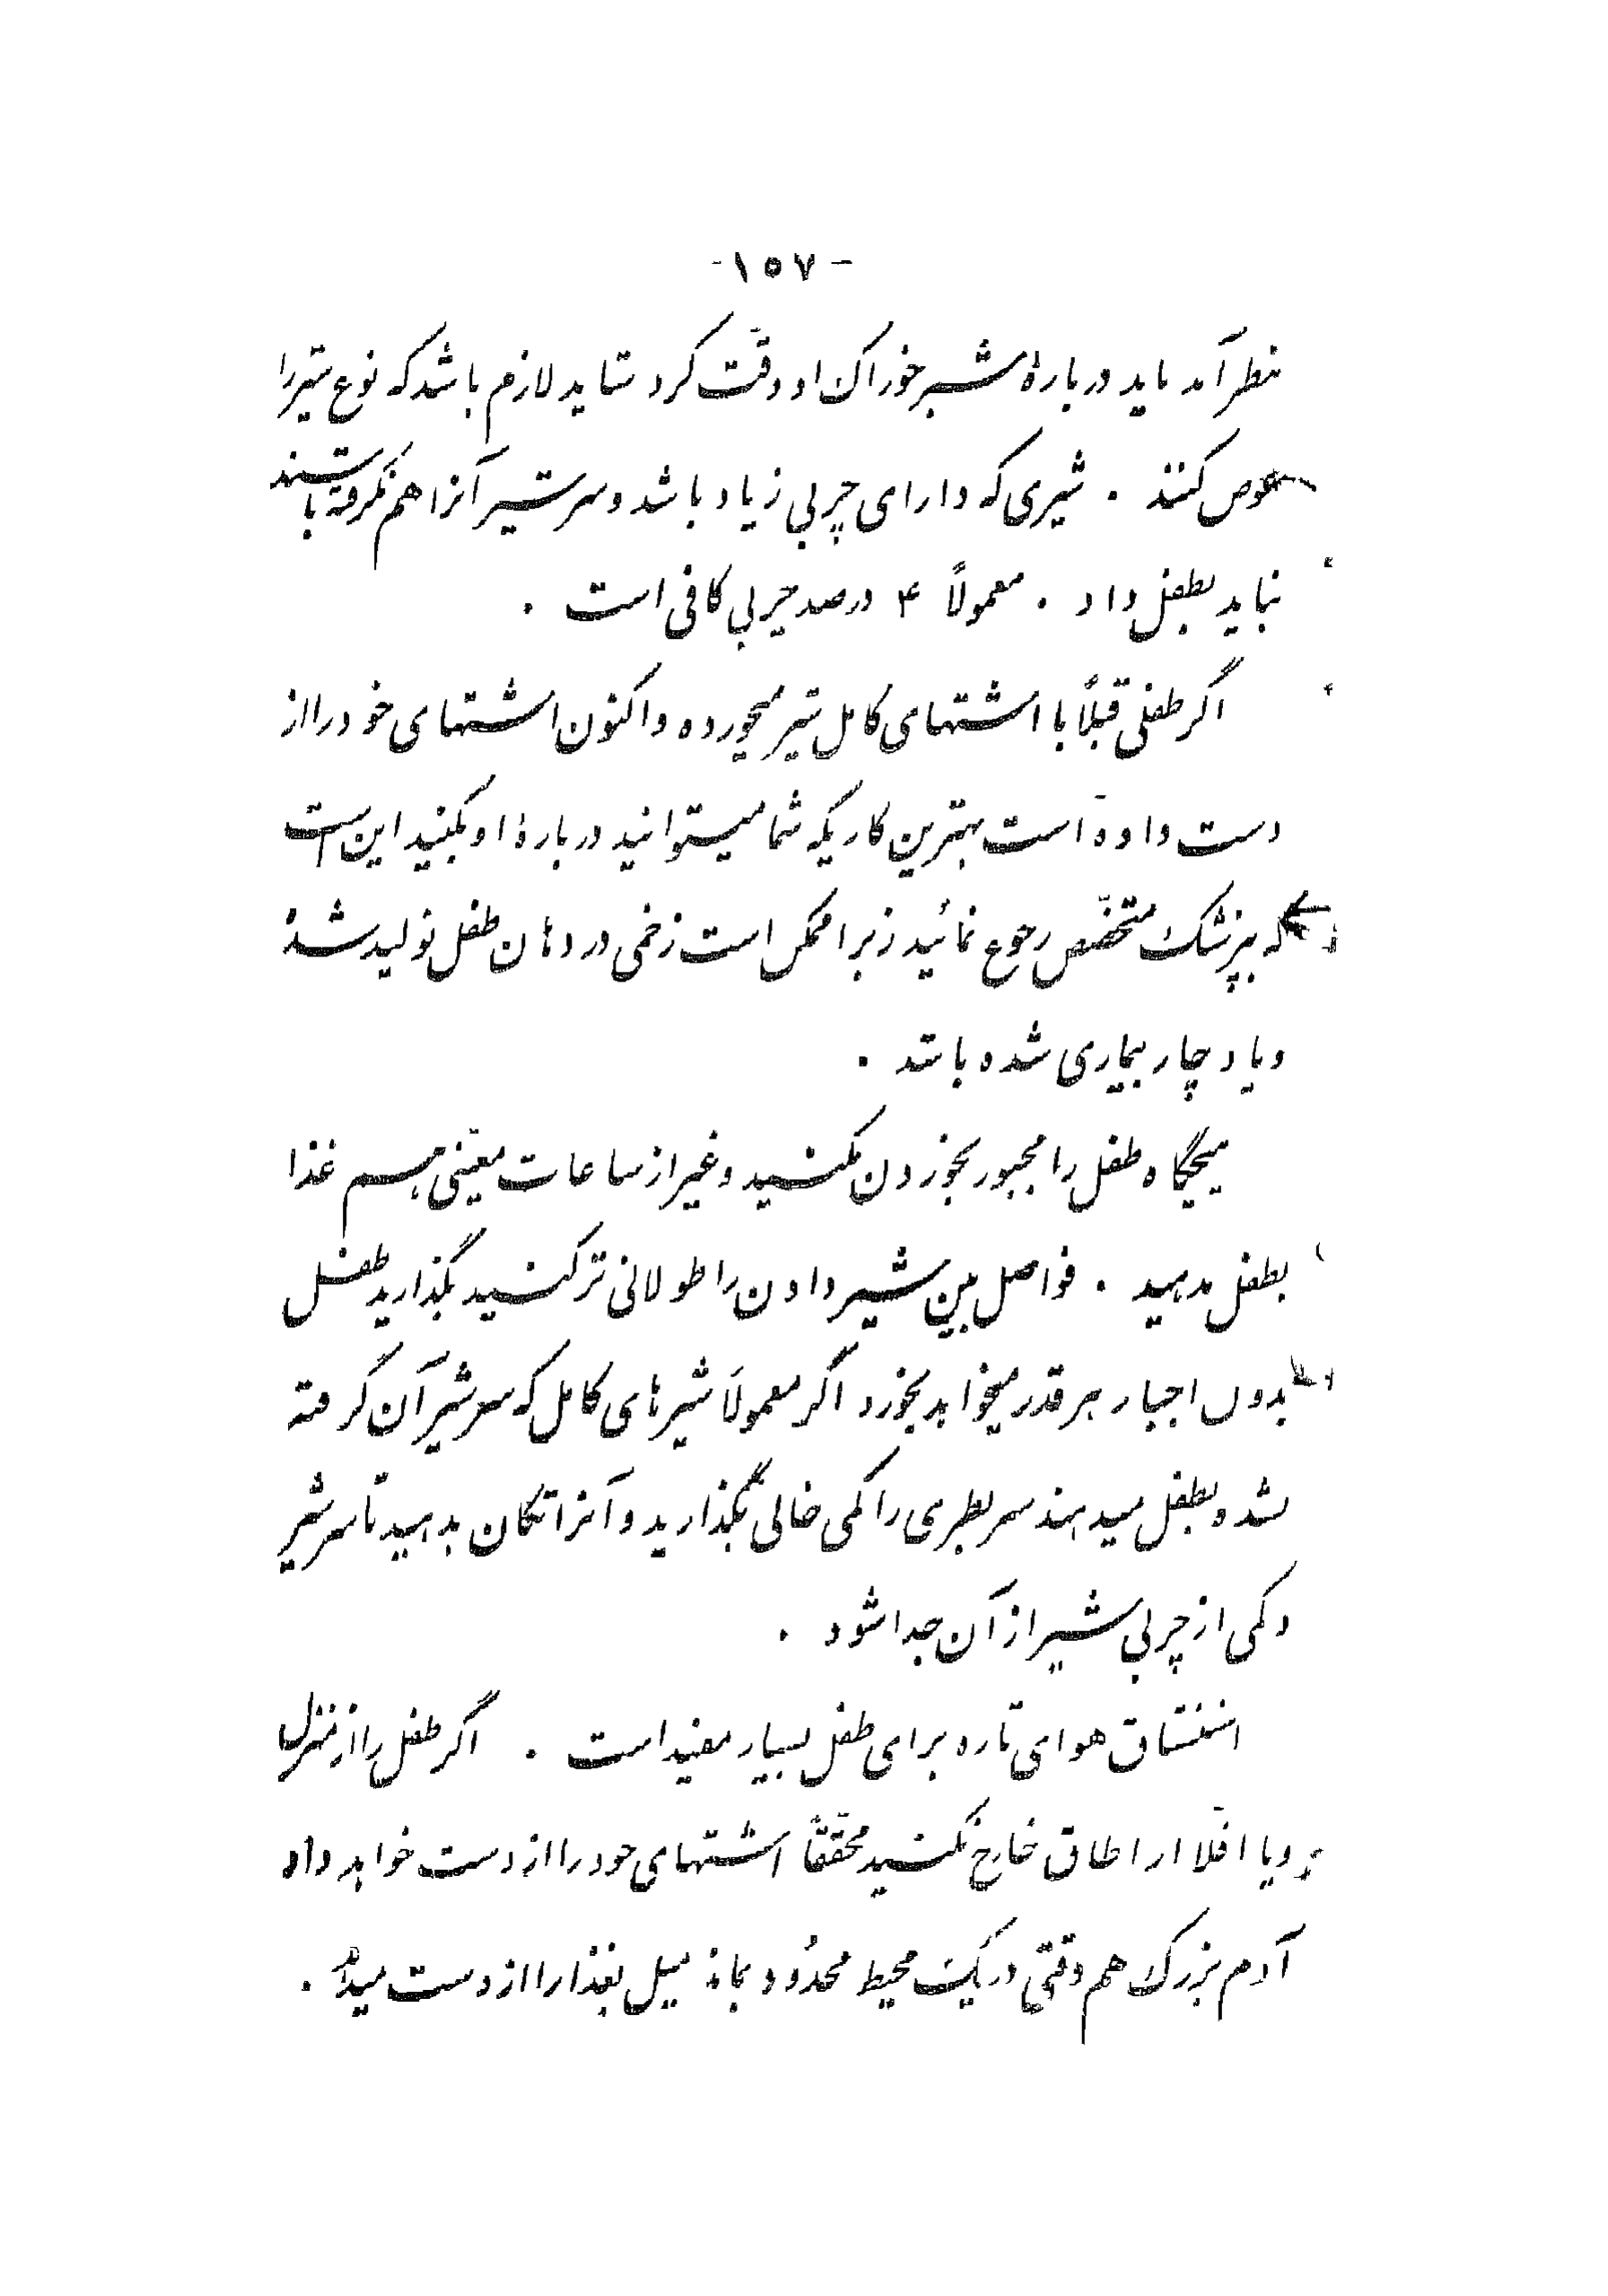 -۱۵۷-
بنظر آمد باید دربارهٔ شیر خوراک او دقّت کرد شاید لازم باشد که نوع شیر را
عوض کنند . شیری که دارای چربی زیاد باشد و سر شیر آنرا هم نگرفته باشند
نباید بطفل داد . معمولاً ۴ درصد چربی کافی است .
اگر طفلی قبلاً با اشتهای کامل شیر میخورده و اکنون اشتهای خود را از
دست داده است بهترین کاریکه شما میتوانید دربارهٔ او بکنید این است
که بپزشک متخصّص رجوع نمائید زیرا ممکن است زخمی در دهان طفل تولید شده
و یا دچار بیماری شده باشد .
هیچگاه طفل را مجبور بخوردن نکنید و غیر از ساعات معیّنی هم غذا
بطفل ندهید . فواصل بین شیر دادن را طولانی تر کنید بگذارید طفل
بدون اجبار هر قدر میخواهد بخورد اگر معمولاً شیرهای کامل که سر شیر آن گرفته
نشده بطفل میدهند سر بطری را کمی خالی بگذارید و آنرا تکان بدهید تا سر شیر
و کمی از چربی شیر از آن جدا شود .
استنشاق هوای تازه برای طفل بسیار مفید است . اگر طفل را از منزل
و یا اقلّا از اطاق خارج نکنید محققّاً اشتهای خود را از دست خواهد داد
آدم بزرگ هم وقتی در یک محیط محدُود بماند میل بغذا را از دست میدهد .